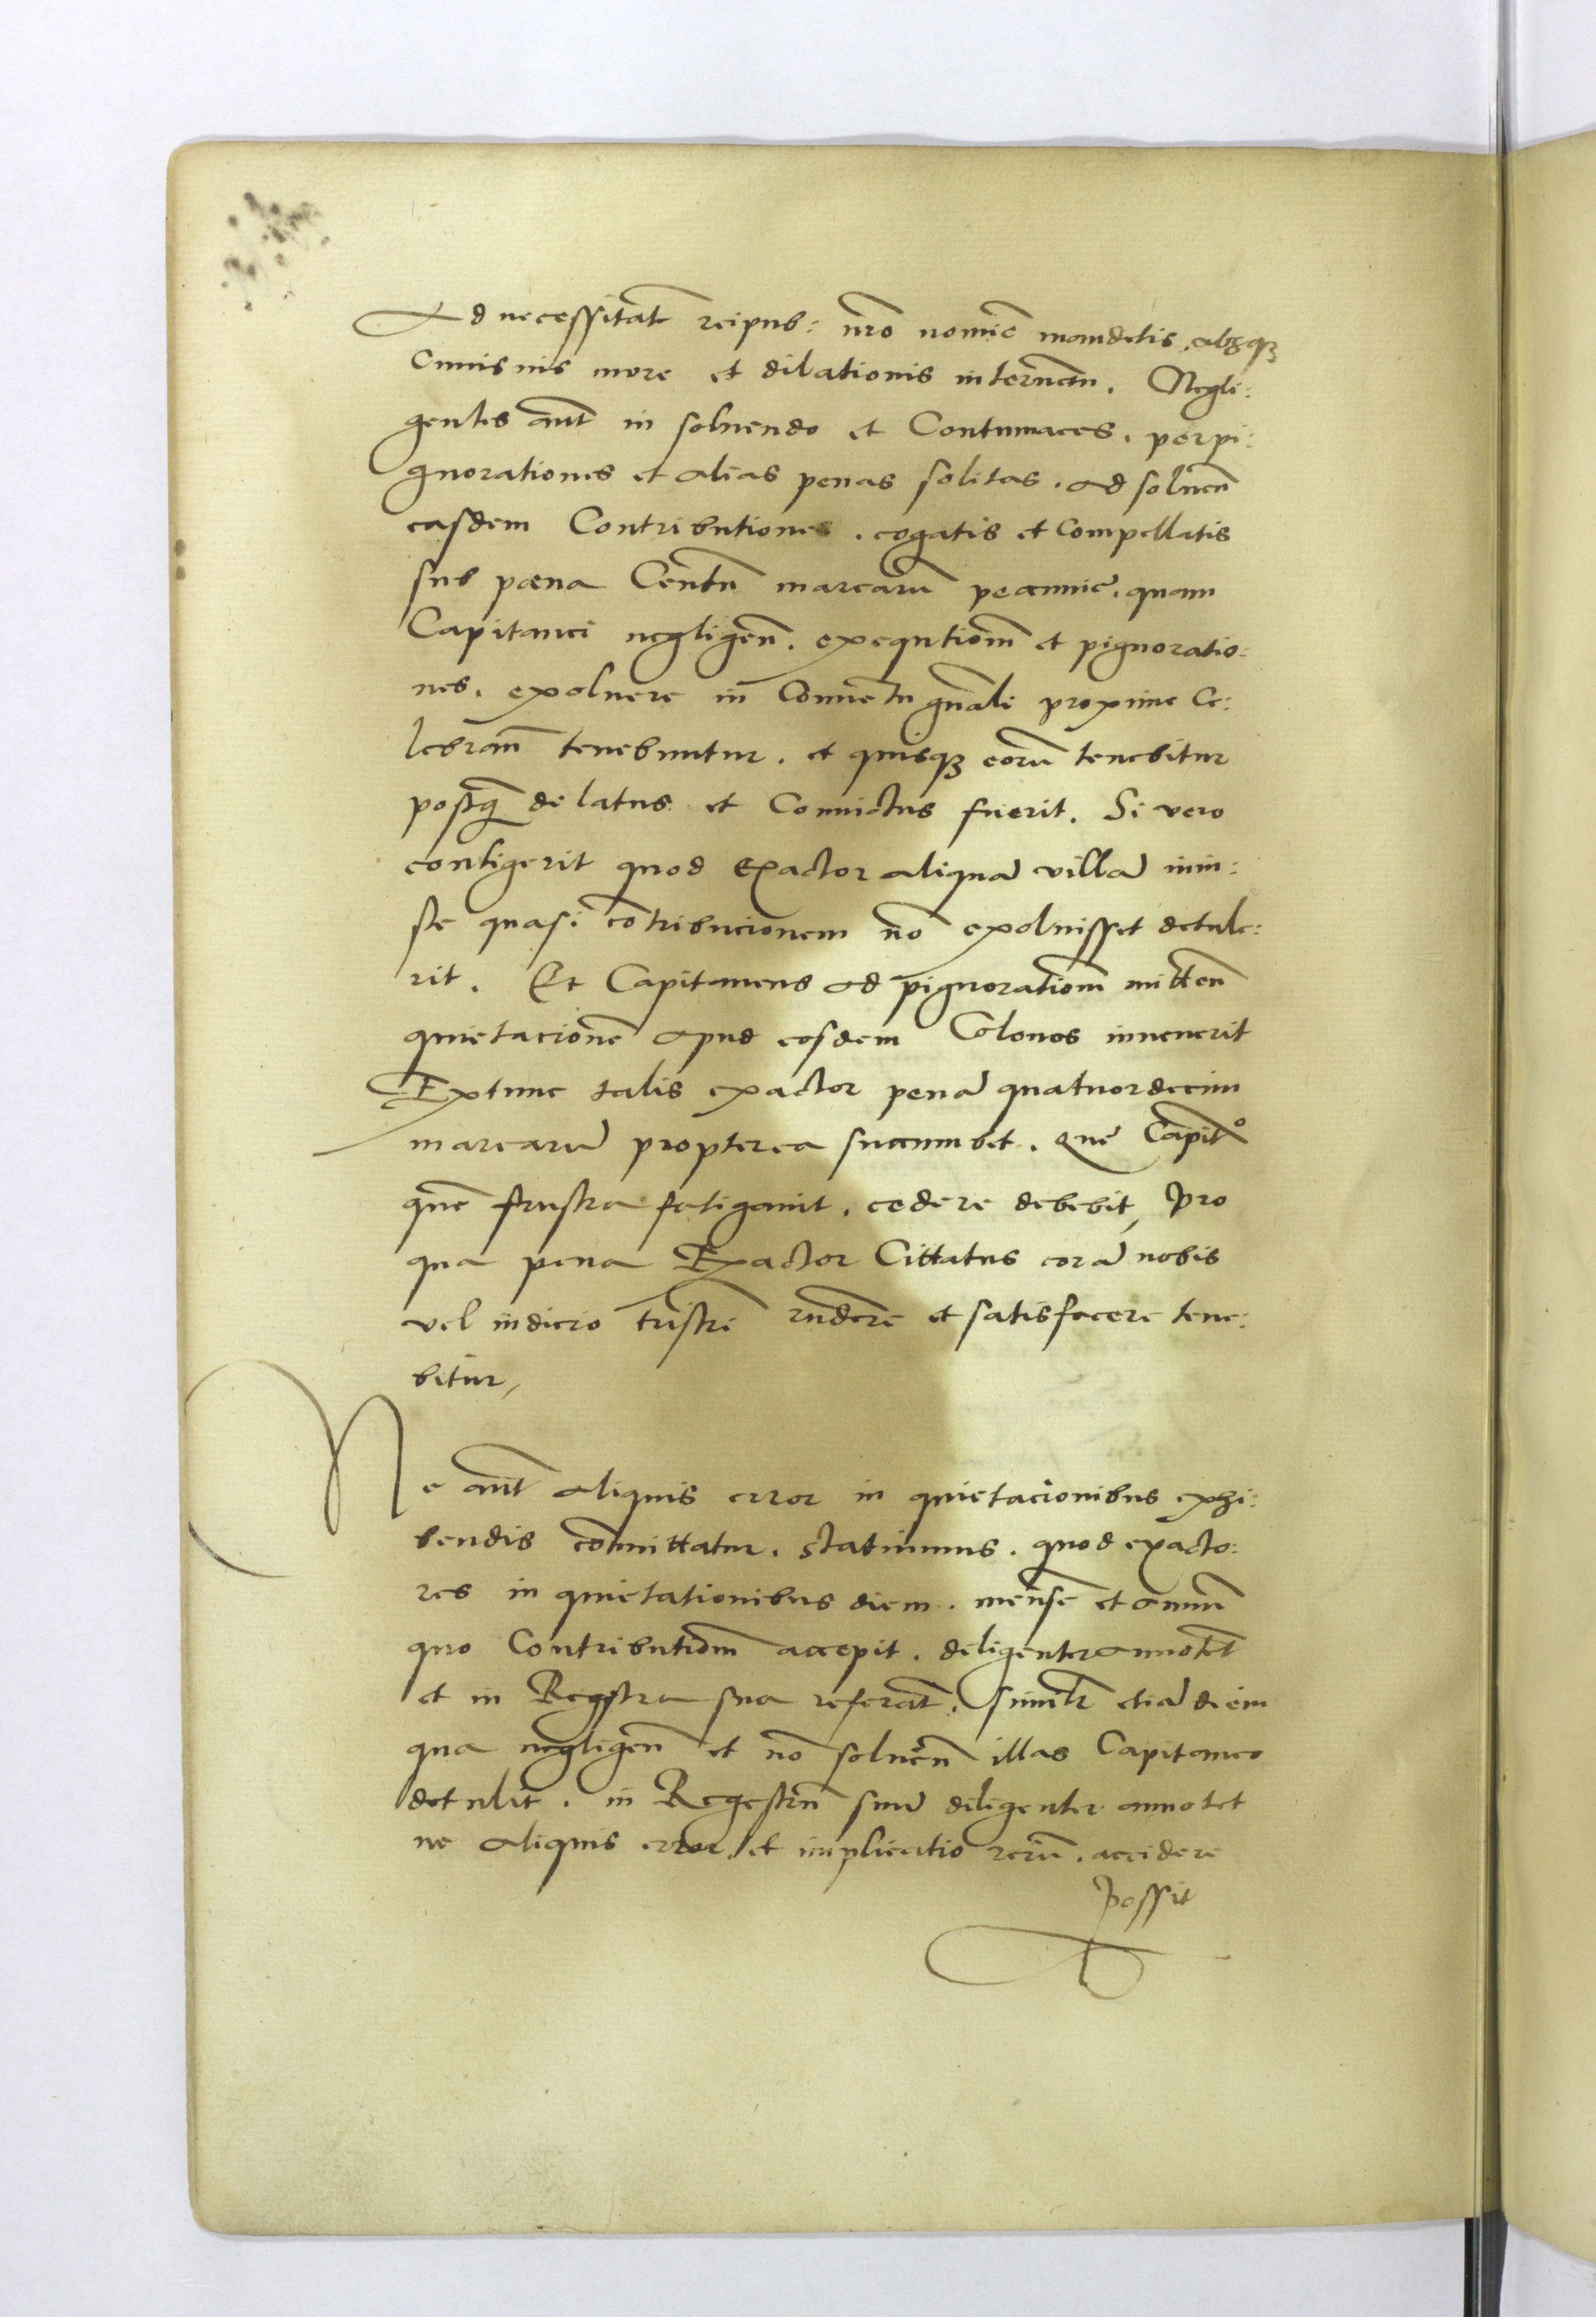 Ad necessitatē reipub: nrō nomīe mandetis, absqꝫ
Cuiusuis more et dilationis interuentu. Negli:
gentes aūt in soluendo et Contumaces. per pi:
gnorationes et alias penas solitas. ad soluen̄
easdem Contributiones. cogatis et Compellatis
sub poena Centū marcarū pecunie. quam
Capitanei negligen̄. exequtiom̄ et pignoratio:
nes. exoluere in Conuētu gn̄ali proxime Ce:
lebran̄ tenebuntur. et quisqꝫ eorū tenebitur
postq̄ delatus et Conuictus fuerit. Si vero
contigerit quod exactor aliquā villā iniu:
ste quasi cōtribucionem nō exoluisset detule:
rit. Et Capitaneus ad pignoratiom̄ mitten̄
quietacionē apud eosdem Colonos inuenerit
Extunc talis exactor penā quatuordecim
marcarū propterea succumbet. Quē Capitº
quē frustra fatigauit. cedere debebit, Pro
qua pena Exactor Cittatus corā nobis
vel iudicio trīstri rn̄dere et satisfacere tene:
bitur,
Ne aūt aliquis error in quietacionibus exhi:
bendis cōmittatur. statuimus. quod exacto:
res in quietationibus diem. mensē et annū
quo Contributiom̄ accepit. diligenter annotēt
et in Regestra sua referāt. similr̄ etiā diem
qua negligen̄ et nō soluēn illas Capitaneo
detulit. in Regestrū suū diligenter annotet
ne aliquis error. et implicatio rerū. accidere
possit